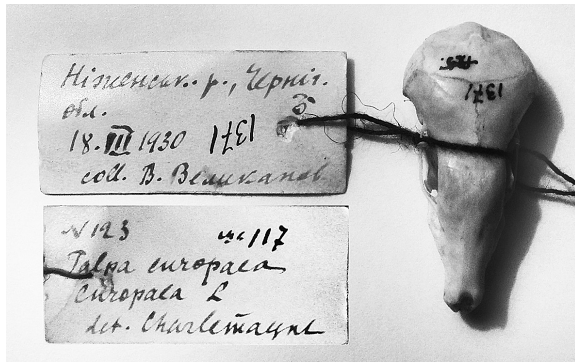 Ніженськ. р., Черніг.
обл. ♂
18.III 1930 1371
coll. В. Великанов
N 123 117
Talpa europaea
europaea L
det. Charlemagne
1371